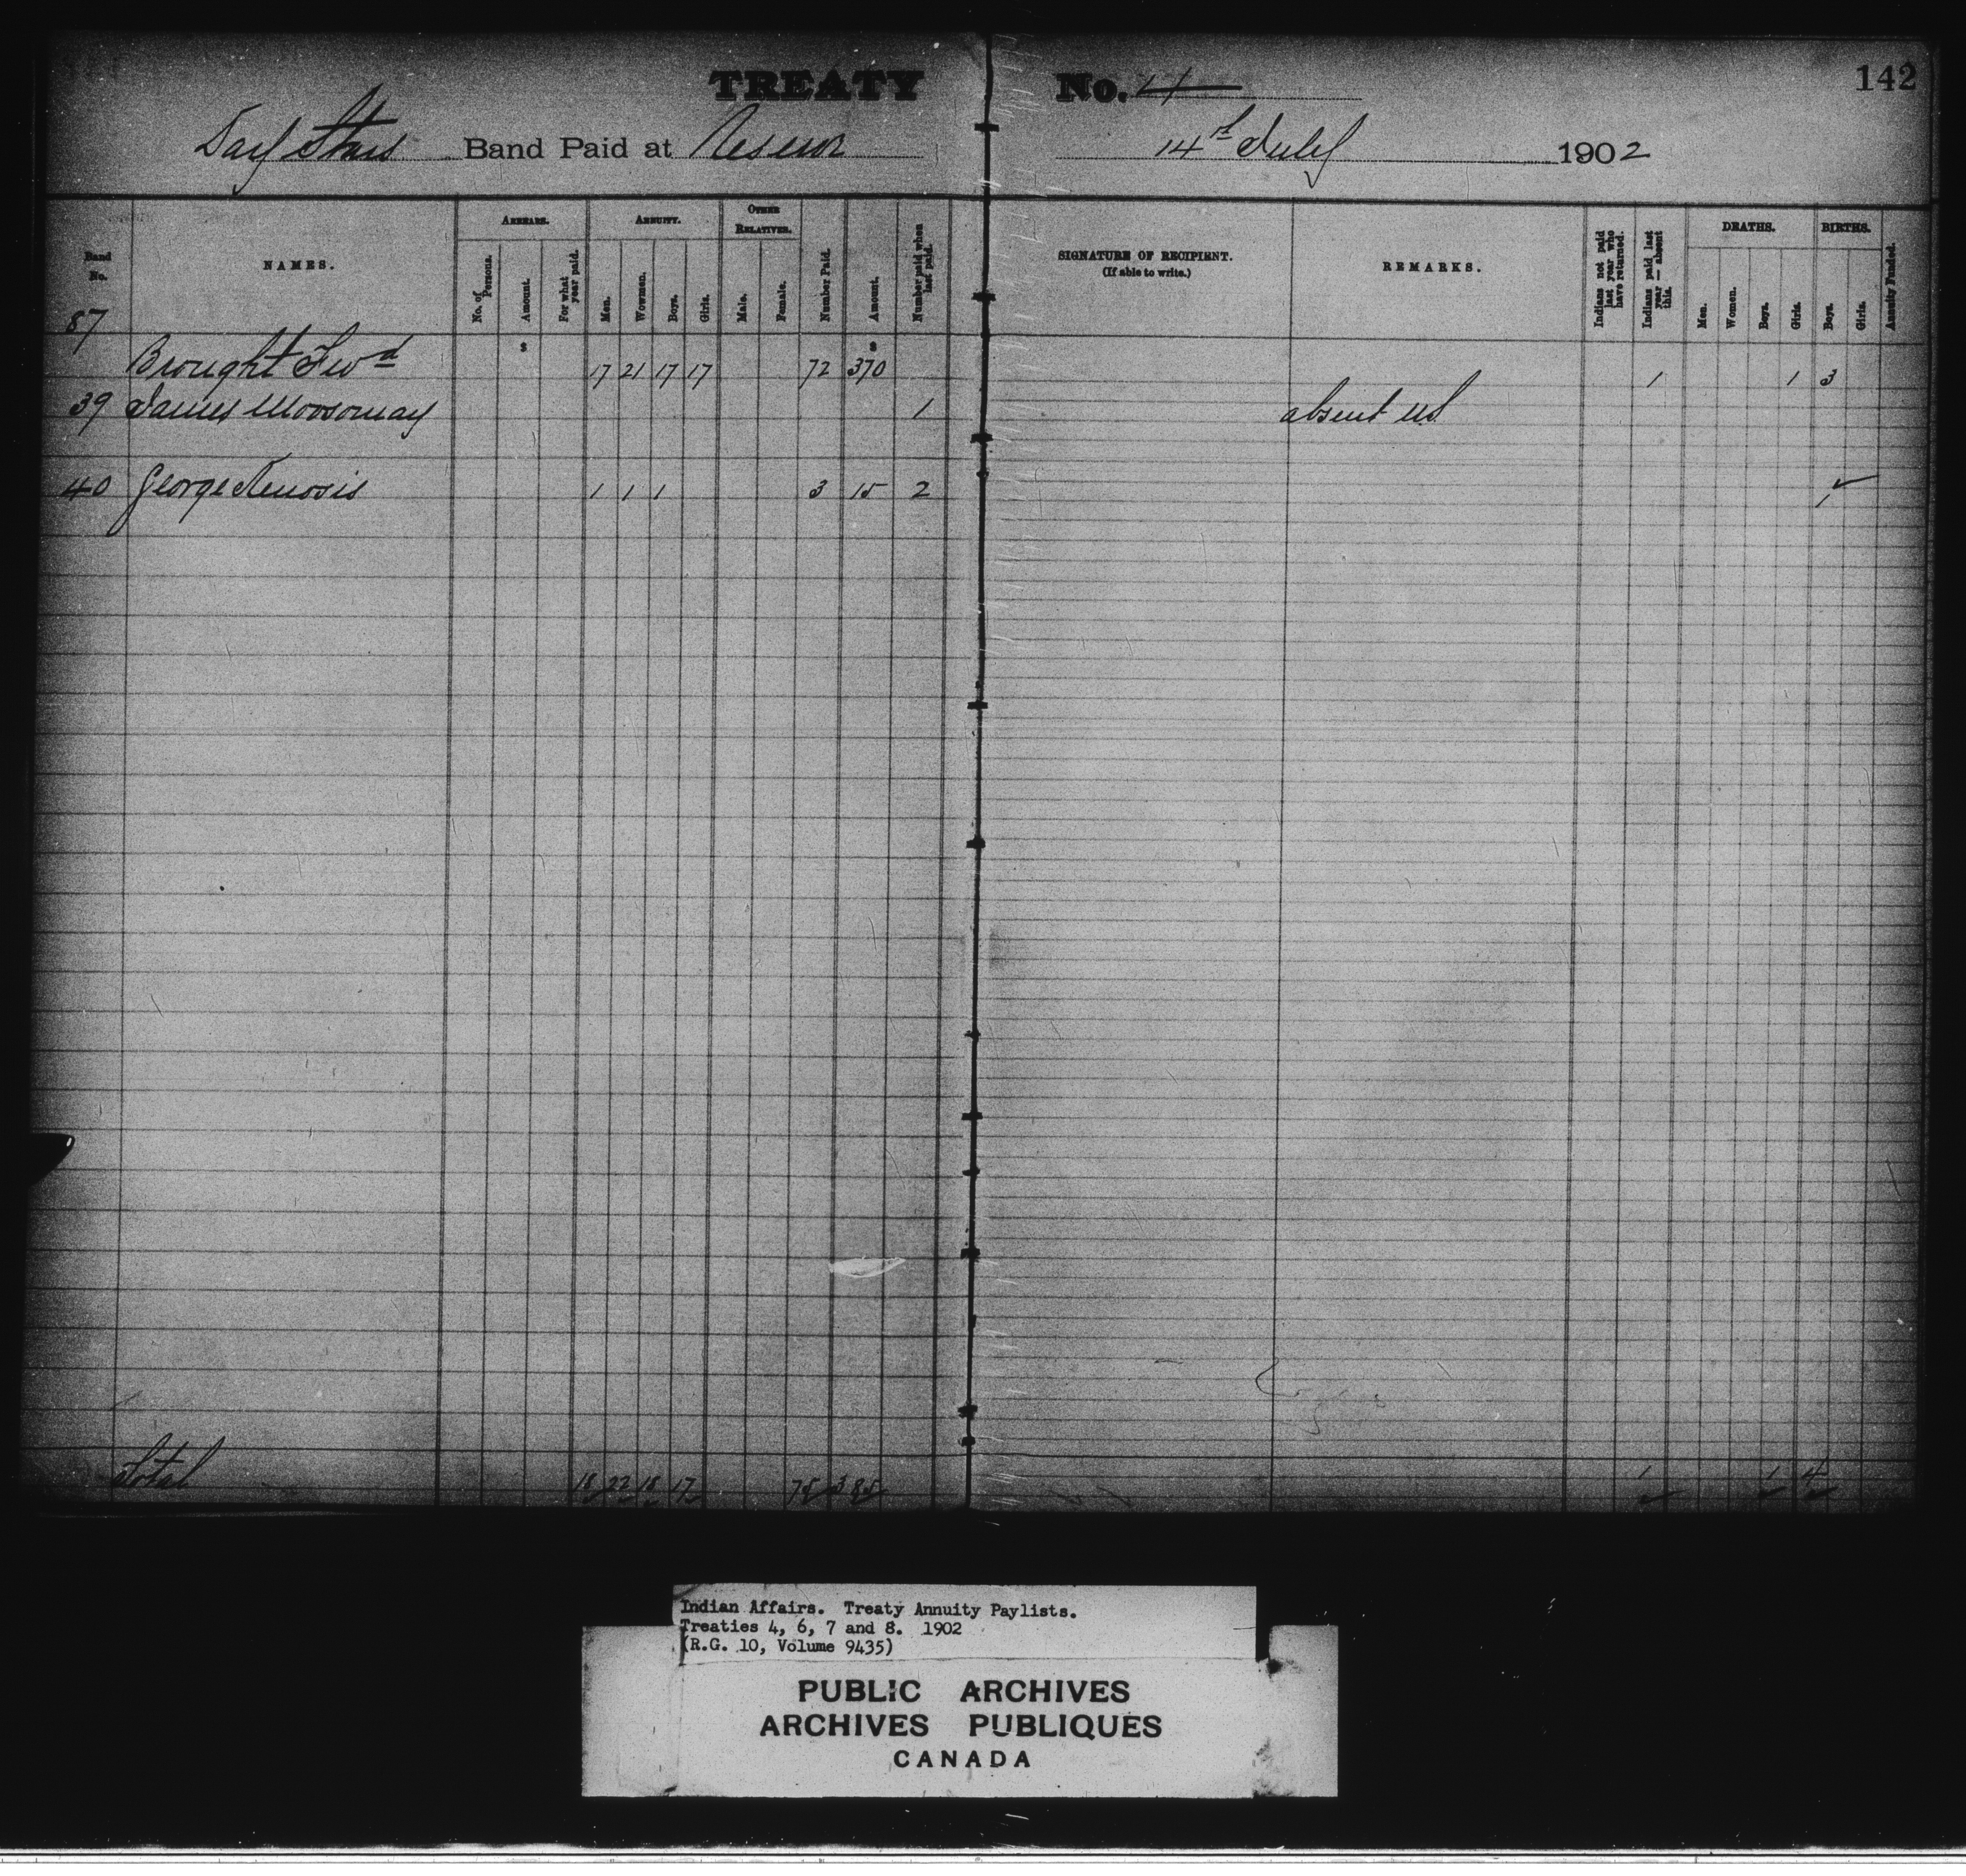 TREATY No. 4 142
Day Stars Band Paid at Reserve 14th July 1902
Band No. NAMES. ARREARS. ANNUITY. OTHER RELATIVES. Number Paid. Amount. Number paid when last paid. SIGNATURE OF RECIPIENT. (If able to write.) REMARKS. Indians not paid last year who have returned. Indians paid last year — absent this. DEATHS. BIRTHS. Annuity Funded.
No. of Persons. Amount. For what year paid. Men. Wowmen. Boys. Girls. Male. Female. Men. Women. Boys. Girls. Boys. Girls.
87
$ $
Brought Fwd 17 21 17 17 72 370 1 1 3
39 James Moosomay 1 absent
40 George 1 1 1 3 15 2 1
Total 18 22 18 17 75 385 1 1 4
Indian Affairs. Treaty Annuity Paylists.
Treaties 4, 6, 7 and 8. 1902
(R.G. 10, Volume 9435)
PUBLIC ARCHIVES
ARCHIVES PUBLIQUES
CANADA